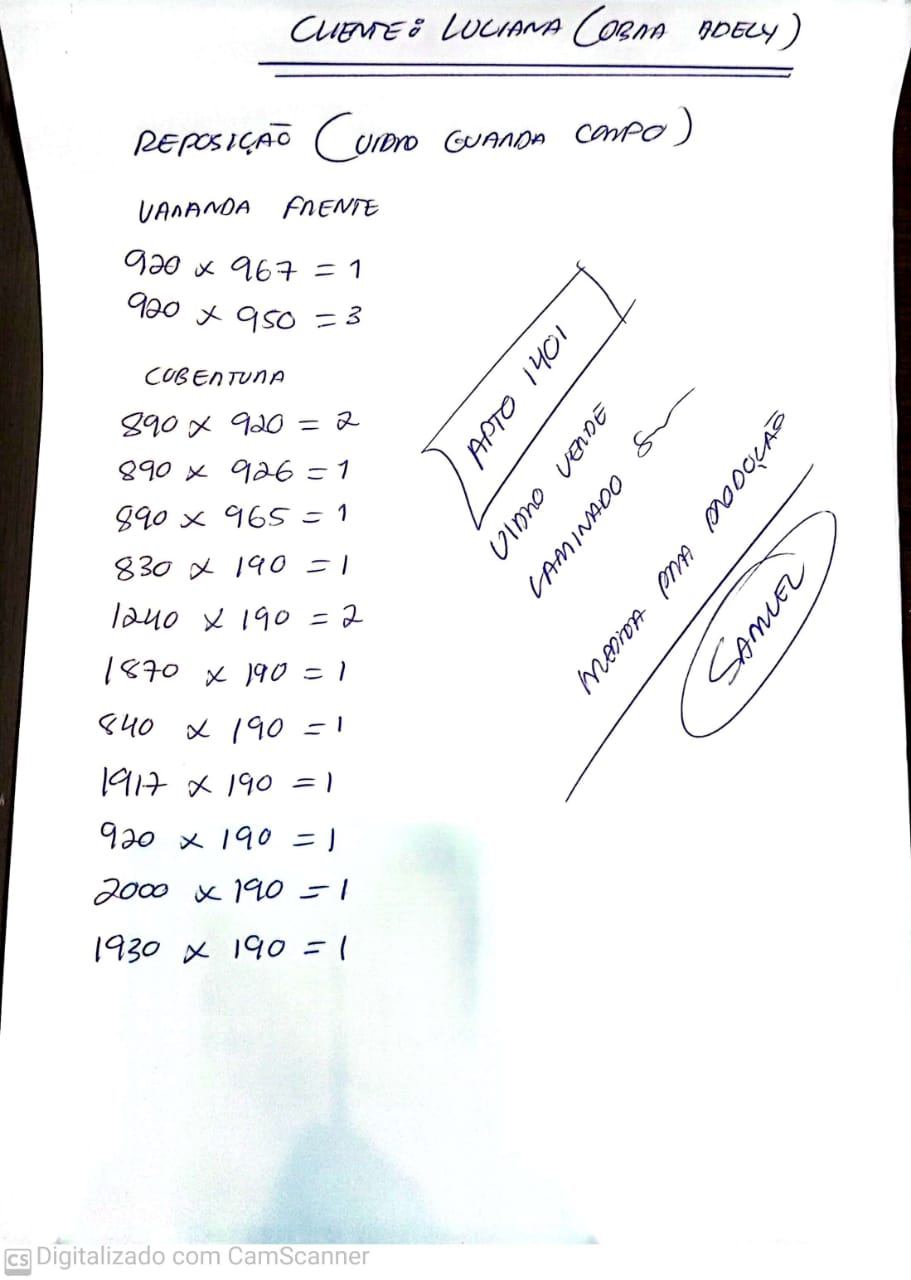 CLIENTE: LUCIANA (OBRA ADELY)
REPOSIÇÃO (VIDRO GUARDA CORPO)
VARANDA FRENTE
920 x 967 = 1
920 x 950 = 3
COBERTURA
890 x 920 = 2
890 x 926 = 1
890 x 965 = 1
830 x 190 = 1
1240 x 190 = 2
1870 x 190 = 1
840 x 190 = 1
1917 x 190 = 1
920 x 190 = 1
2000 x 190 = 1
1930 x 190 = 1
APTO 1401
VIDRO VERDE
LAMINADO
MEDIDA PRA PRODUÇÃO
SAMUEL
CS Digitalizado com CamScanner